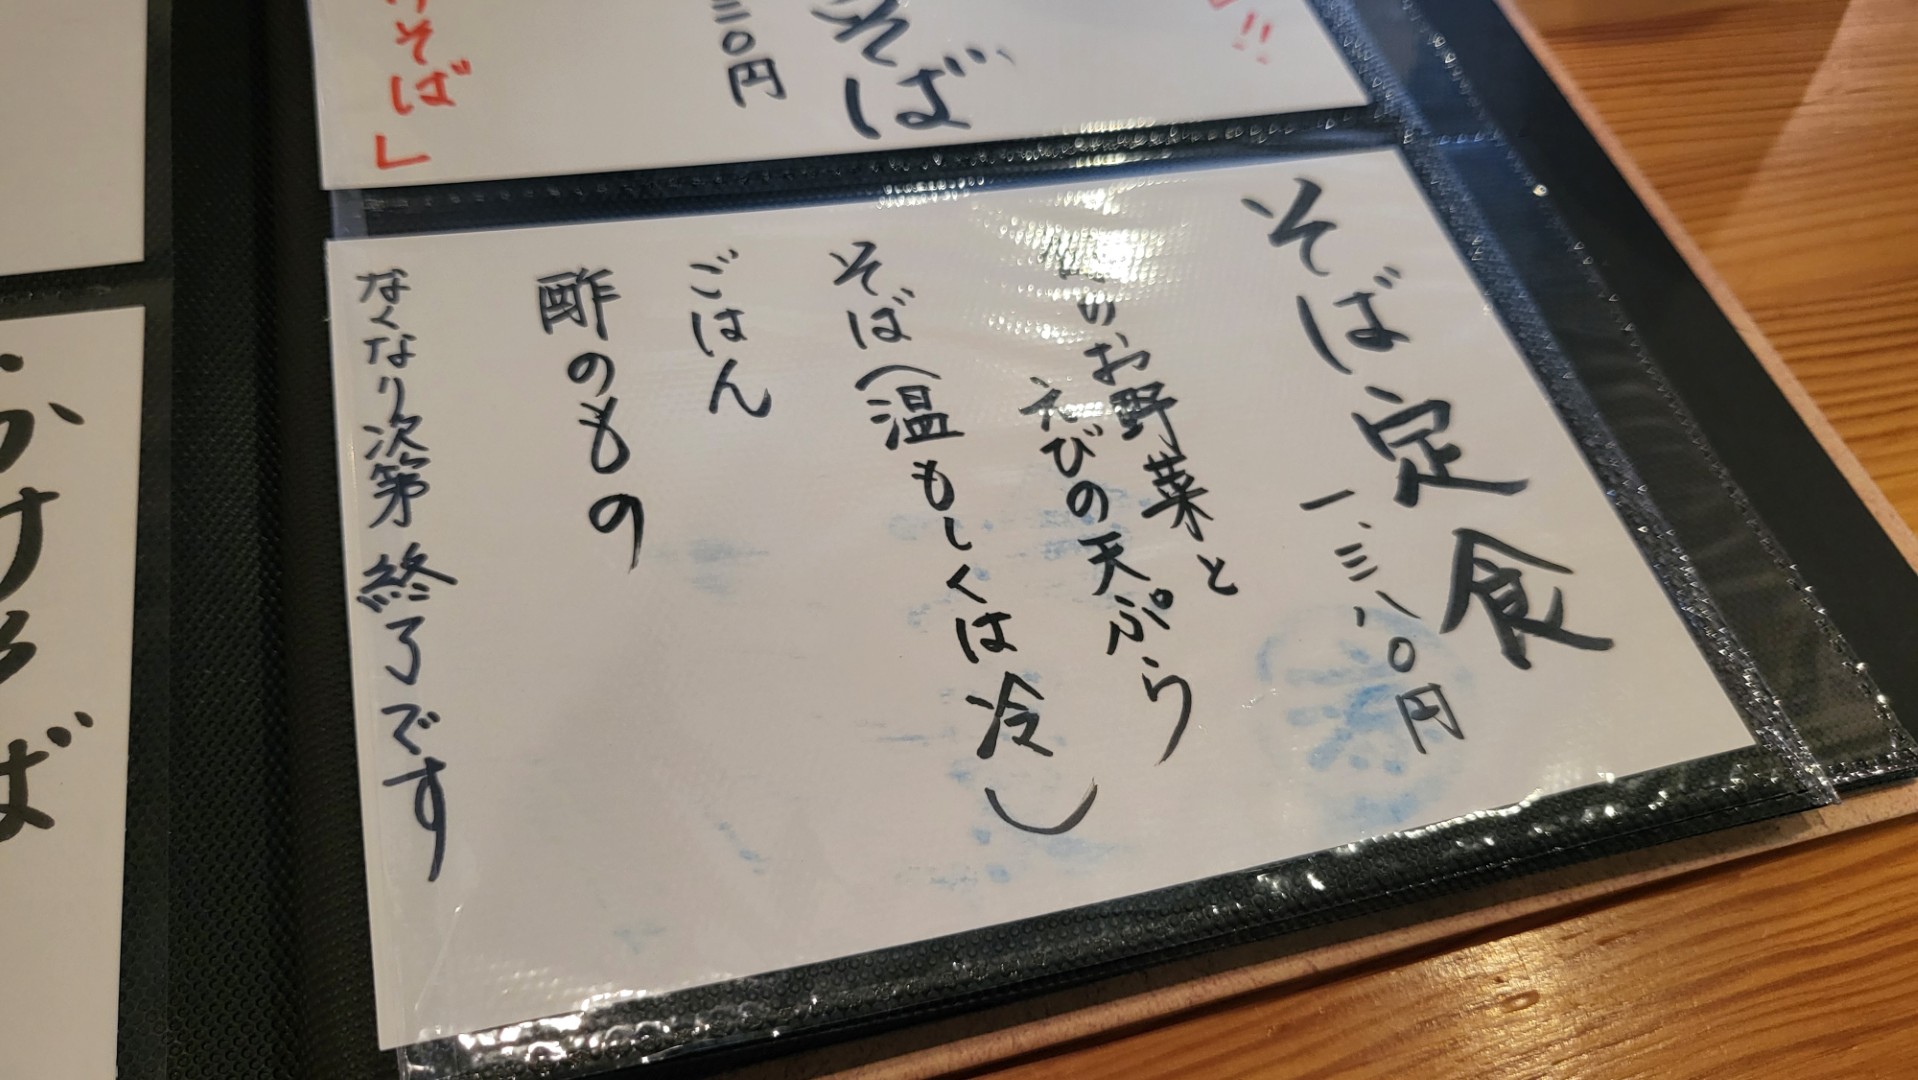 そば
三〇円
そば」
!!
そば定食
一、三八〇円
のお野菜と
えびの天ぷら
そば(温もしくは冷)
ごはん
酢のもの
なくなり次第終了です
かけそば